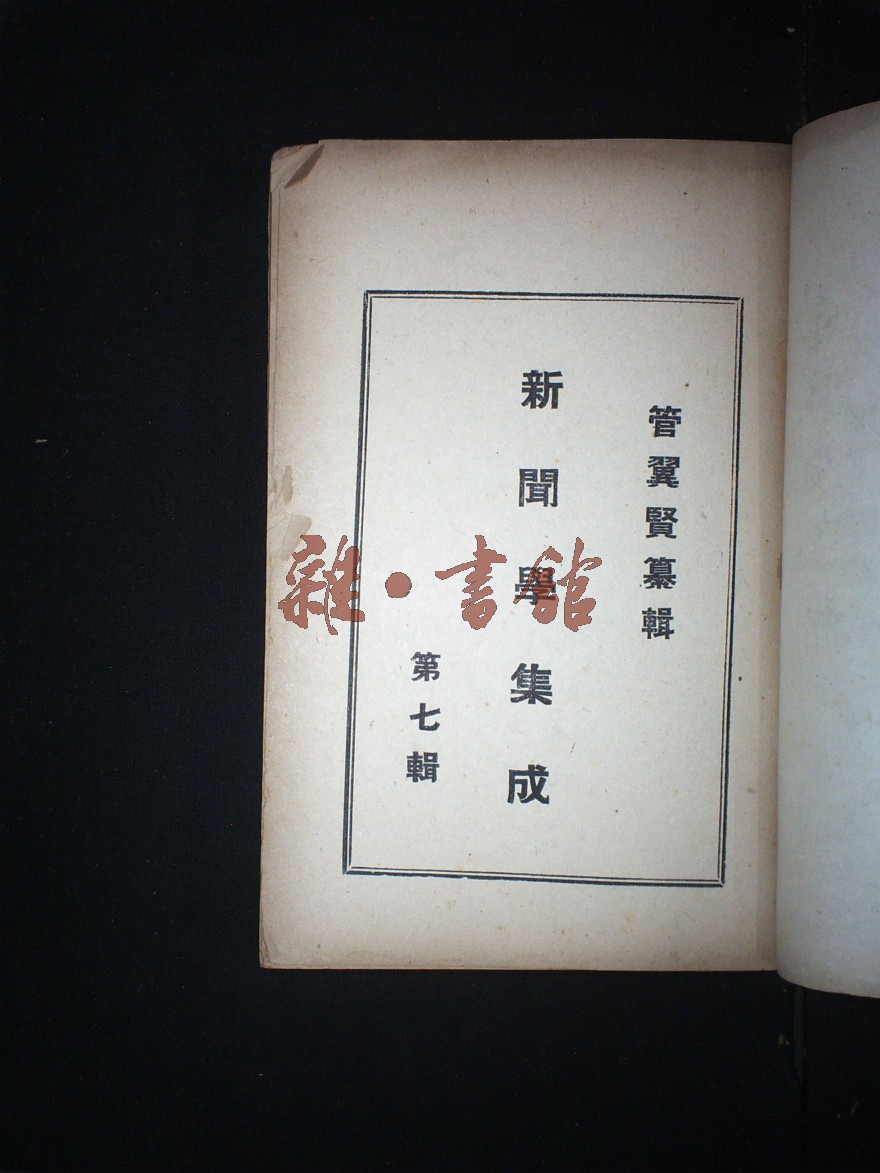 管翼賢纂輯
新聞學集成
第七輯
雜·書館